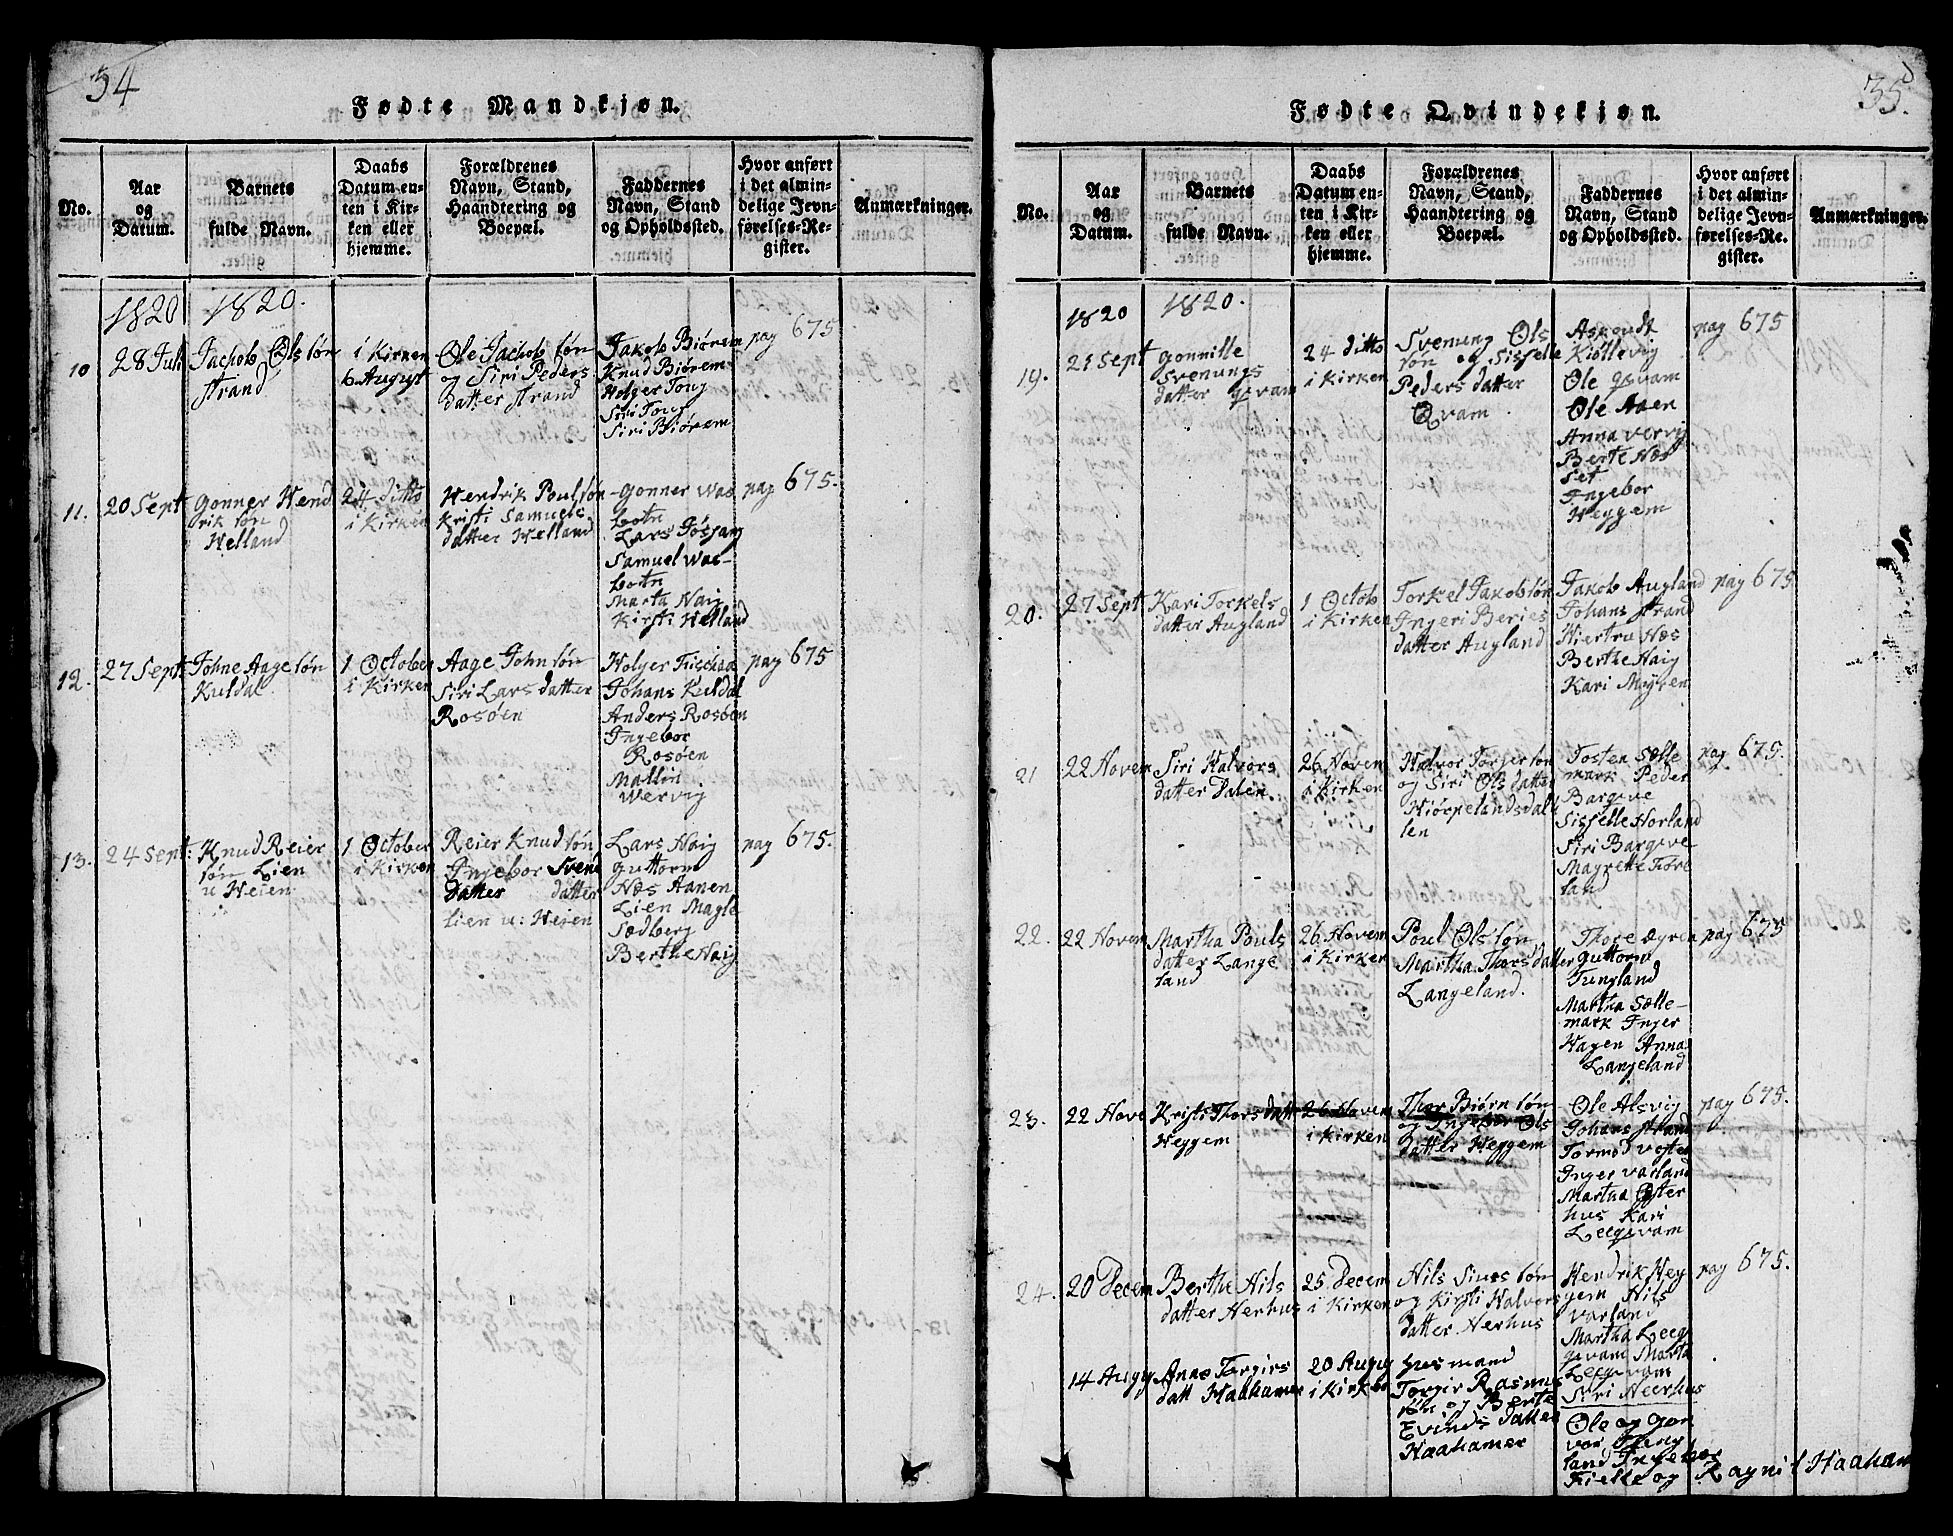 34
Fødte Mandkjøn.
No.
Aar
og
Datum.
Barnets
fulde Navn.
Daabs
Datum en-
ten i Kir-
ken eller
hjemme.
Forældrenes
Navn, Stand,
Haandtering og
Boepæl.
Faddernes
Navn, Stand
og Opholdssted.
Hvor anført
i det almin-
delige Jevn-
førelses-Re-
gister.
Anmærkninger.
1820
1820.
10
28 Juli
Jachob Ols søn
strand
i Kirken
6 August
Ole Jachob søn
og Siri Peders
datter strand
Jakob Biørem
Knud Biørem
Holger Tong
Siri Tong
Siri Biørem
pag 675
11.
20 Sept
Gonner Hend
rik søn
Helland
24 ditto
i Kirken
Hendrik Poul søn
Kristi Samuels
datter Helland
Gonner Was
botn
Lars
Samuel Was-
botn
Marta Haig
Kirsti Helland
pag 675.
12.
27 Sept.
Johne Aage søn
Kuldal
1 October
i Kirken
Aage John søn
Siri Lars datter
Rosøen
Holger
Johans Kuldal
Anders Rosøen
Ingebor
Rosøen
Mallin
Wervig
pag 675
13.
24 Sept:
Knud Reier
søn Lien
u Heien
1 October
i Kirken
Reier Knud søn
Ingebor Svend
Datter datter
Lien u: Heien
Lars Haig
Guttorm
Næs Aanen
Lien Magle
Sødberg
Berthe Haig
pag 675.
35.
Fødte Qvindekjøn.
No.
Aar
og
Datum.
Barnets
fulde Navn.
Daabs
Datum en-
ten i Kir-
ken eller
hjemme.
Forældrenes
Navn, Stand,
Haandtering og
Boepæl.
Faddernes
Navn, Stand
og Opholdssted.
Hvor anført
i det almin-
delige Jevn-
førelses-Re-
gister.
Anmærkninger.
1820
1820.
19.
21 Sept
Gonnille
Svenungs
datter Qvam
24 ditto
i Kirken
Svenung Ols
søn og Sisselle
Peders datter
Qvam
Asgoudt
Kiøllevig
Ole Qvam
Ole Aaen
Anna Vervig
Berte Næs
set
Ingebor
Heggem
pag 675
20.
27 Sept
Kari Torkels
datter Augland
1 Octob
i Kirken
Torkel Jakob søn
Ingeri Beries
datter Augland
Jakob Augland
Johans strand
Hiertru Næs
Berthe Haig
Kari Møgren
pag 675
21
22 Novem
Siri Halvors
datter Dalen.
26 Novem
i Kirken
Halvor Torger søn
og Siri Ols datter
Hiørpelandsdal
len
Tosten Sølle
mark Peder
Bargeve
Sisselle Horland
Siri Bargeve
Magrette Tøre
land
pag 675.
22.
22 Novem
Martha Pouls
datter Lange
land
26 Novem
i Kirken
Poul Ols søn
Martha Thors datter
Langeland.
Thore
Guttorm
Tungland
Martha Sølle-
mark Inger
Hagen Anna
Langeland
pag 675
23.
22 Nove
Kristi Thors datt
Heggem
26 Novem
i Kirken
Thor Biørn søn
og Ingebor Ols
datter Heggem
Ole Alsvig
Johans strand
Tormod
Inger Varland
Martha Øster
hus Kari
Leeqvam
pag 675.
24.
20 Decem
Berthe Nils
datter Nerhus
25 Decem
i Kirken
Nils Siurs søn
og Kirsti Halvors
datter Nerhus
Hendrik Heg
gem Nils
Varland
Martha Leeq
qvam Marta
Leeqvam
Siri Neerhus
pag 675.
14 Augu
Anne Torgirs
datt Haahamer
20 Augu
i Kirke
Husmand
Torgir Rasmus
søn og Berte
Evinds datter
Haahamer
Ole og Gon
vor
land Ingebor
Fielle og Ragnil Haaham